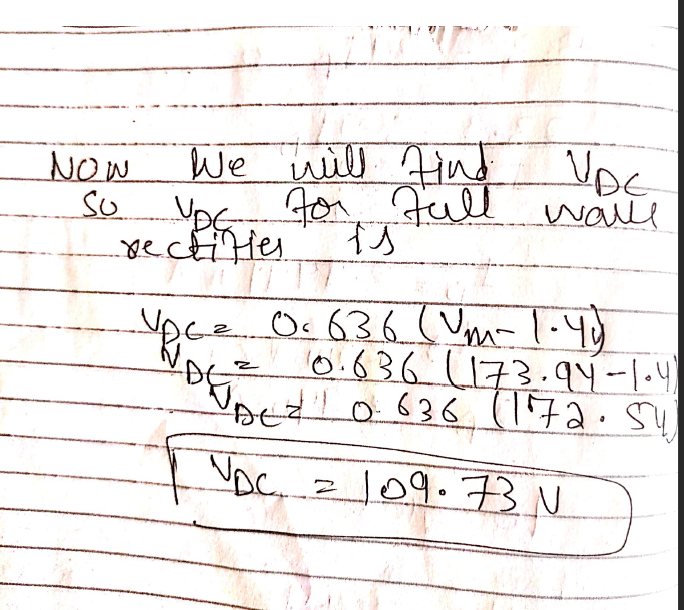 NOW We will find VDC
so VDC for full wave
rectifier is
VDC = 0.636 (Vm - 1.4)
VDC = 0.636 (173.94 - 1.4
VDC = 0.636 (172.54)
VDC = 109.73 V